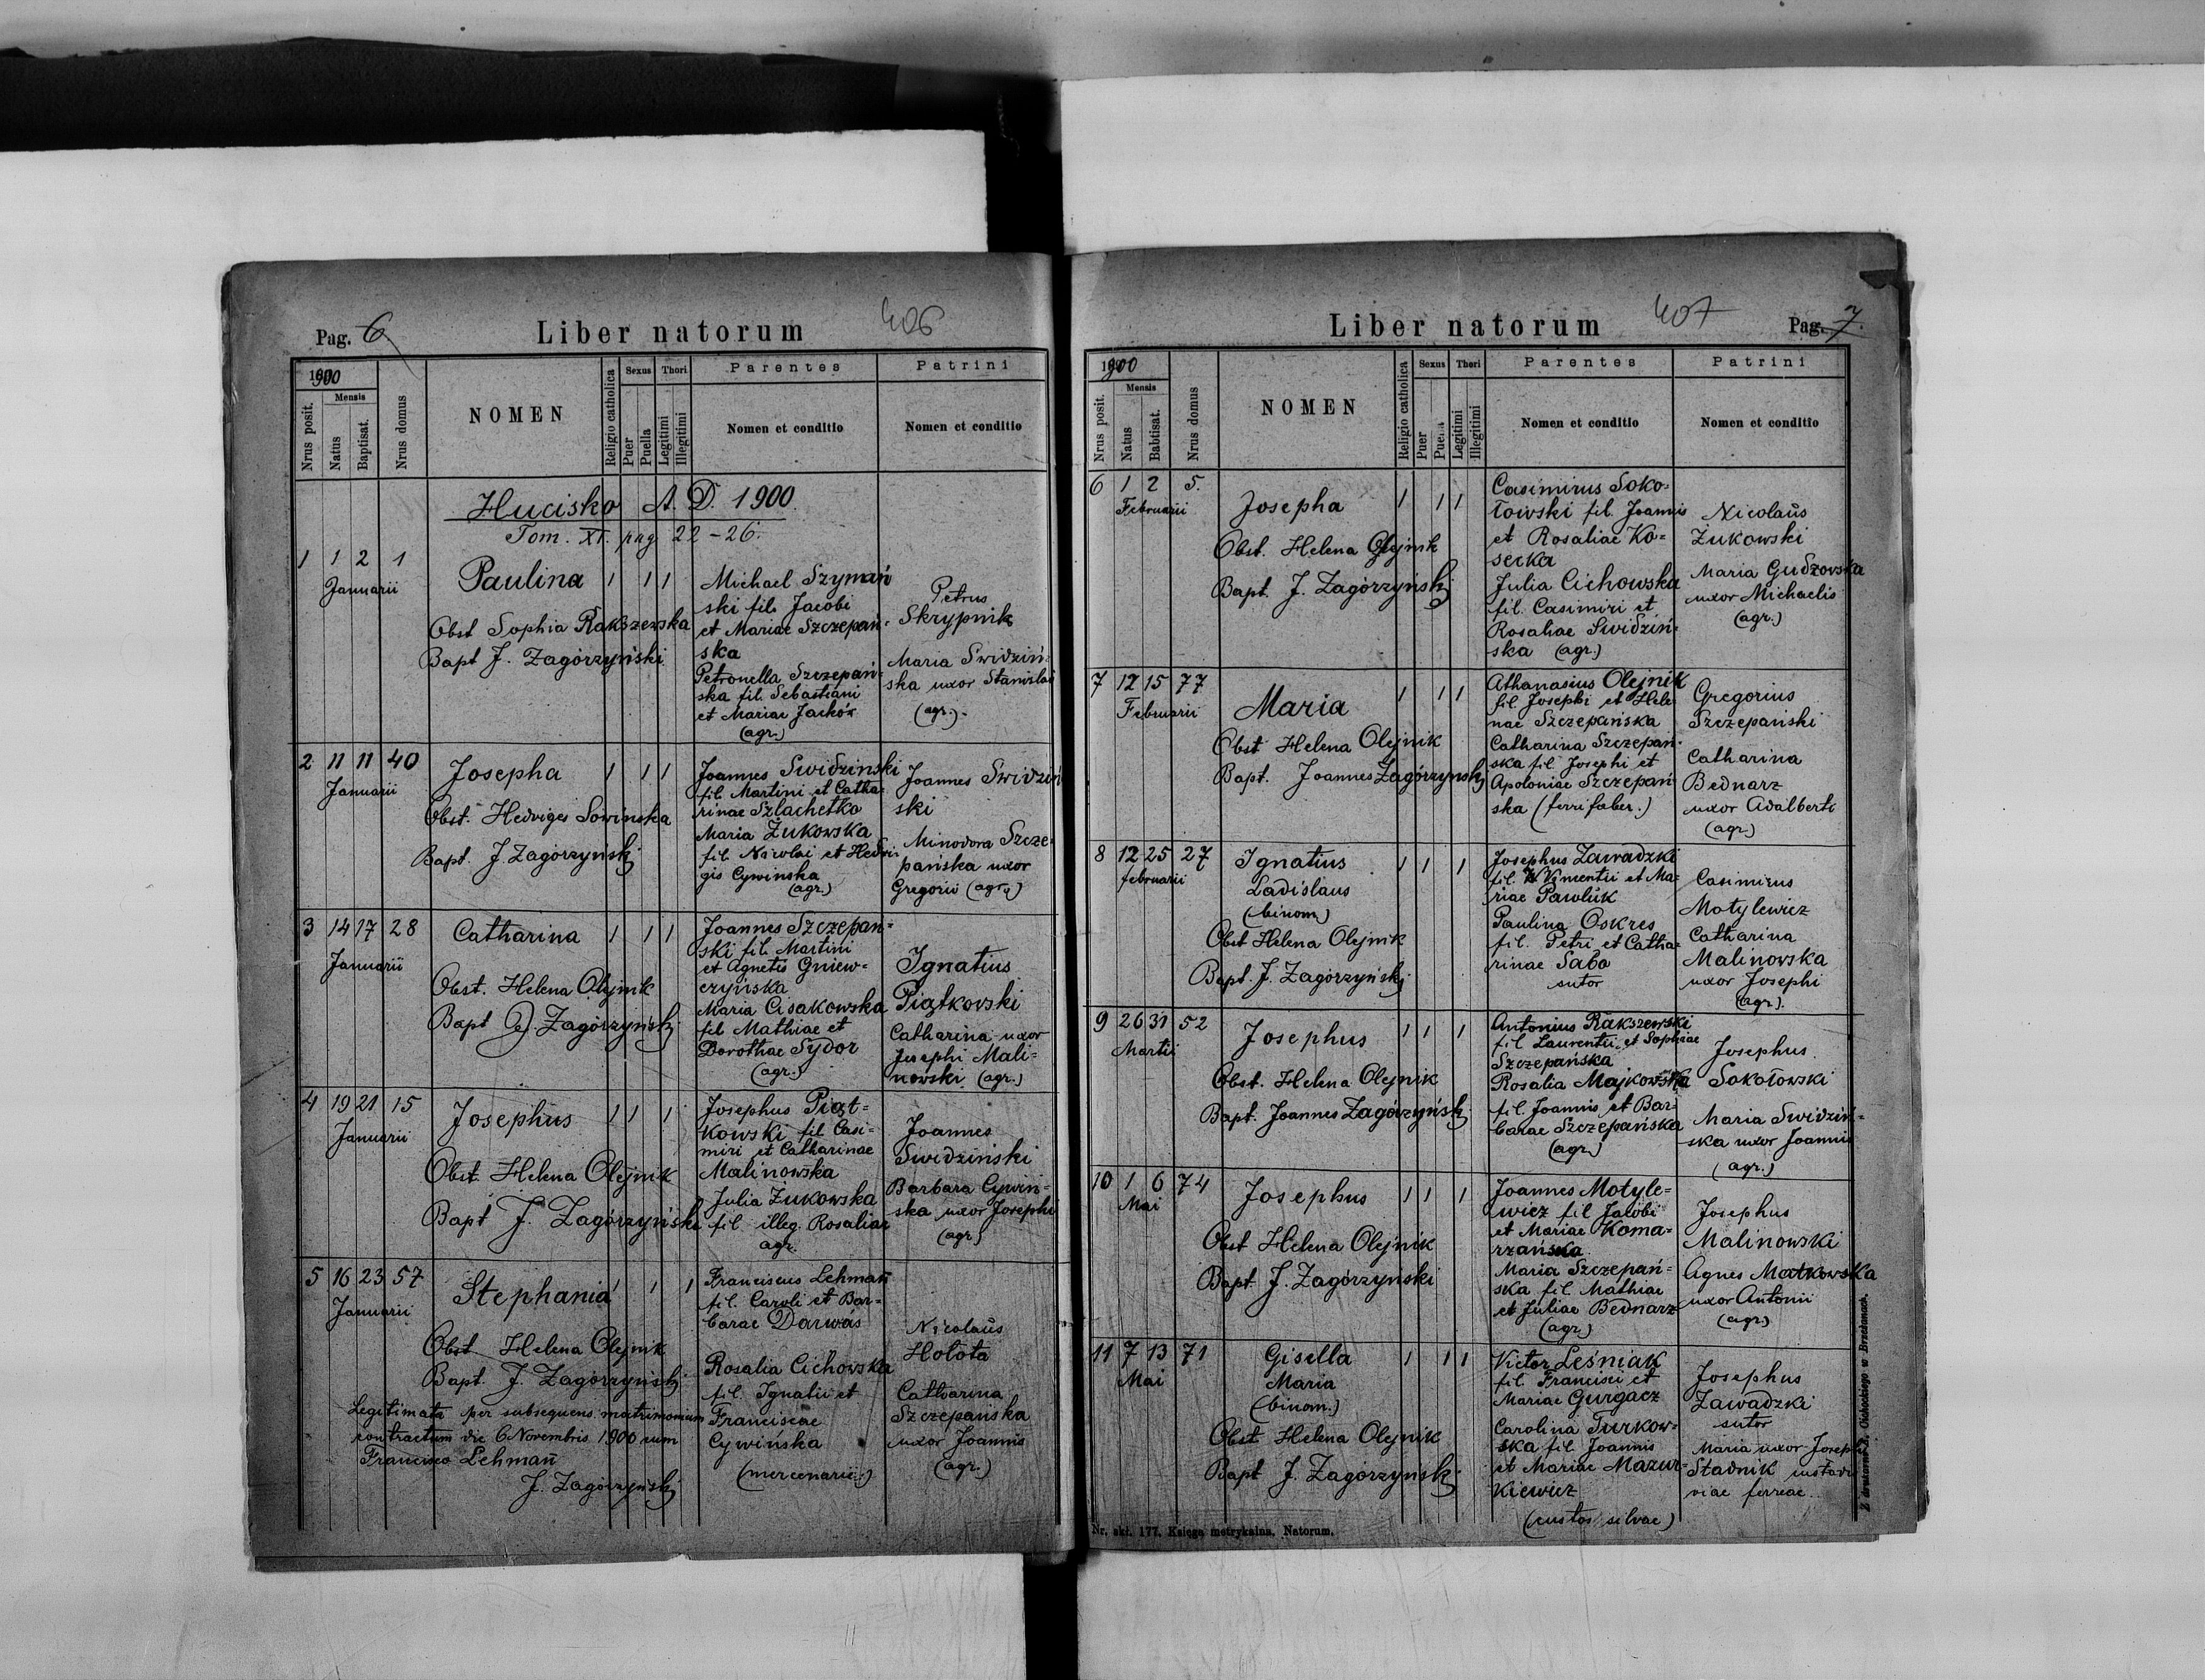 Pag. 6
Liber natorum
406
1900
Mensis
Nrus posit.
Natus
Baptisat.
Nrus domus
NOMEN
Religio catholica
Sexus
Puer
Puella
Thori
Legitimi
Illegitimi
Parentes
Nomen et conditio
Patrini
Nomen et conditio
Hucisko A. D. 1900.
Tom. XI. pag 22-26.
1 1 2 1
Januarii
Paulina 1 1 1
Obst Sophia Rakszewska
Bapt J. Zagórzyński
Michael Szymań
ski fil. Jacobi
et Mariae Szczepań-
ska
Petronella Szczepań-
ska fil. Sebastiani
et Mariae
(agr.)
Petrus
Skrypnik
Maria Swidziń
ska uxor Stanislai
(agr.)
2 11 11 40
Januarii
Josepha 1 1 1
Obst. Hedviges Sowinska
Bapt. J. Zagórzyński
Joannes Swidzinski
fil. Martini et Catha-
rinae Szlachetko
Maria Żukowska
fil. Nicolai et Hedvi-
gis Cywinska
(agr.)
Joannes Swidziń
ski
Minodora Szcze-
pańska uxor
Gregorii (agr.)
3 14 17 28
Januarii
Catharina 1 1 1
Obst. Helena Olejnik
Bapt J. Zagórzyński
Joannes Szczepań-
ski fil. Martini
et Agnetis Gniew-
czyńska
Maria Cisakowska
fil Mathiae et
Dorothae Sydor
(agr.)
Ignatius
Piątkovski
Catharina uxor
Josephi Mali-
nowski (agr.)
4 19 21 15
Januarii
Josephus 1 1 1
Obst Helena Olejnik
Bapt J. Zagórzyński
Josephus Piąt-
kowski fil Casi-
miri et Catharinae
Malinowska
Julia Żukowska
fil illeg. Rosaliae
agr.
Joannes
Swidzinski
Barbara Cywin-
ska uxor Josephi
(agr)
5 16 23 57
Januarii
Stephania 1 1 1
Obst Helena Olejnik
Bapt. J. Zagórzyński
Legitimata per subsequens matrimonium
contractum die 6 Novembris 1900 cum
Francisco Lehmań
J. Zagórzyński
Franciscus Lehmań
fil. Caroli et Bar-
barae Darwás
Rosalia Cichowska
fil. Ignatii et
Franciscae
Cywińska
(mercenarii)
Nicolaus
Hołota
Catharina
Szczepańska
uxor Joannis
(agr.)
Liber natorum
407
Pag. 7.
1900
Mensis
Nrus posit.
Natus
Babtisat.
Nrus domus
NOMEN
Religio catholica
Sexus
Puer
Puella
Thori
Legitimi
Illegitimi
Parentes
Nomen et conditio
Patrini
Nomen et conditio
6 1 2 5.
Februarii
Josepha 1 1 1
Obst. Helena Olejnik
Bapt. J. Zagórzyński
Casimirus Soko-
łowski fil. Joannis
et Rosaliae Ko-
secka
Julia Cichowska
fil. Casimiri et
Rosaliae Swidziń-
ska (agr.)
Nicolaus
Żukowski
Maria Gudzovska
uxor Michaelis
(agr.)
7 12 15 77
Februarii
Maria 1 1 1
Obst Helena Olejnik
Bapt. Joannes Zagórzynski
Athanasius Olejnik
fil Josephi et Hele
nae Szczepańska
Catharina Szczepań-
ska fil. Josephi et
Apoloniae Szczepań-
ska (ferri faber.)
Gregorius
Szczepański
Catharina
Bednarz
uxor Adalberti
(agr.)
8 12 25 27
februarii
Ignatius 1 1 1
Ladislaus
(binom.)
Obst Helena Olejnik
Bapt. J. Zagórzyński
Josephus Zawadzki
fil. Vincentii et Ma-
riae Pawluk
Paulina Oskres
fil. Petri et Catha-
rinae Sabo
sutor
Casimirus
Motylewicz
Catharina
Malinowska
uxor Josephi
(agr.)
9 26 31 52
Martii
Josephus 1 1 1
Obst. Helena Olejnik
Bapt. Joannes Zagórzyński
Antonius Rakszewski
fil Laurentii et Sophiae
Szczepańska
Rosalia Majkowska
fil. Joannis et Bar-
barae Szczepańska
(agr.)
Josephus
Sokołowski
Maria Swidziń-
ska uxor Joannis
(agr.)
10 1 6 74
Mai
Josephus 1 1 1
Obst Helena Olejnik
Bapt J. Zagórzyński
Joannes Motyle-
wicz fil Jacobi
et Mariae Koma-
rzańska
Maria Szczepań-
ska fil. Mathiae
et Juliae Bednarz
(agr.)
Josephus
Malinowski
Agnes Matkowska
uxor Antonii
(agr.)
11 7 13 71
Mai
Gisella 1 1 1
Maria
(binom.)
Obst Helena Olejnik
Bapt J. Zagórzyński
Victor Leśniak
fil. Francisci et
Mariae Gurgacz
Carolina Turkow-
ska fil Joannis
et Mariae Mazur-
kiewicz
(custos silvae)
Josephus
Zawadzki
sutor
Maria uxor Josephi
Stadnik custodis
viae ferreae.
Nr. skł. 177. Księga metrykalna. Natorum.